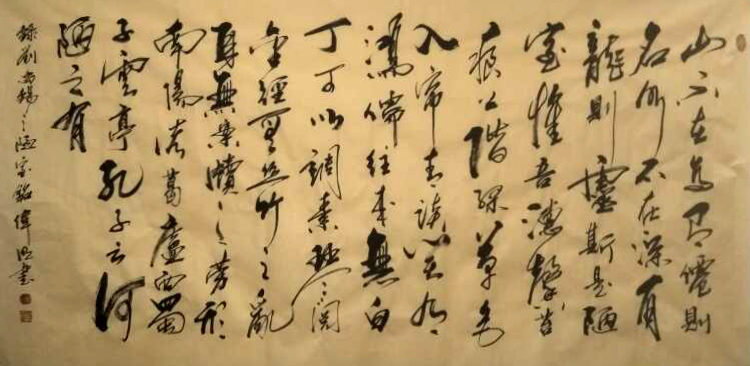 山不在高有僊則
名水不在深有
龍則靈斯是陋
室惟吾德馨苔
痕上階綠草色
入帘青談笑有
鴻儒往來無白
丁可以調素琴閱
金經無絲竹之亂
耳無案牘之勞形
南陽諸葛廬西蜀
子雲亭孔子云何
陋之有
錄劉禹錫之陋室銘偉書